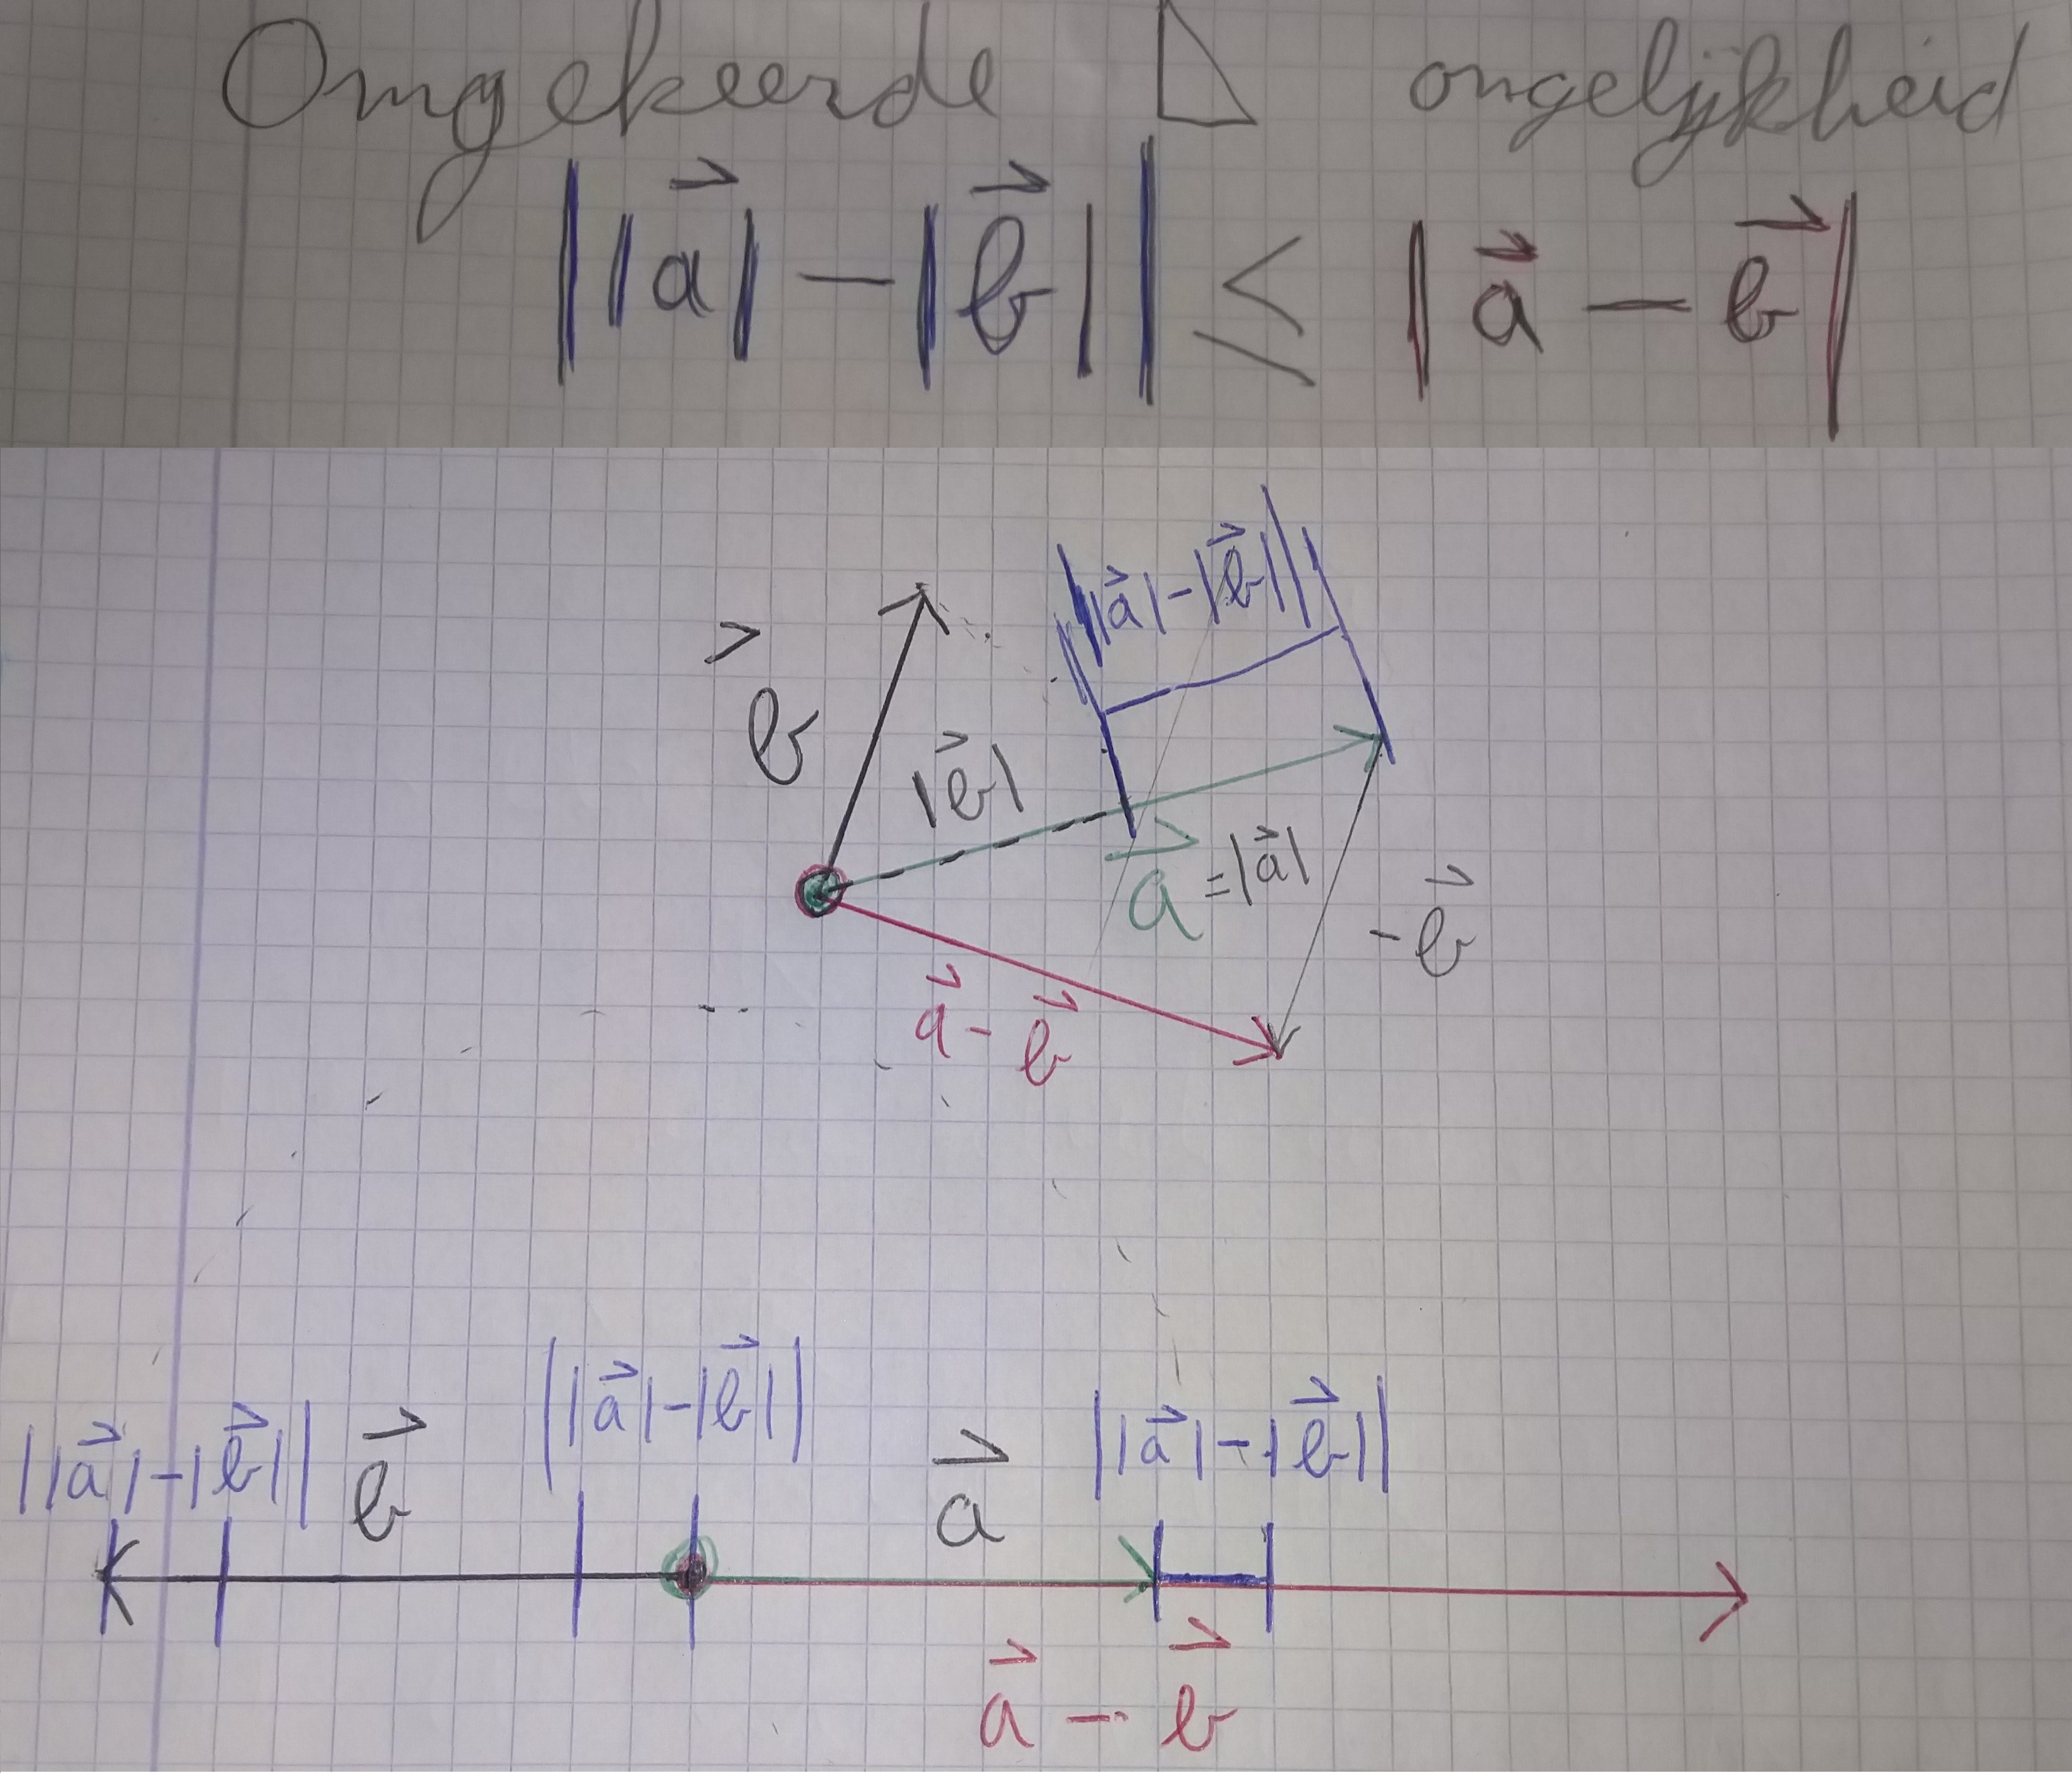 Omgekeerde △ ongelijkheid
||a⃗| - |b⃗|| ≤ |a⃗ - b⃗|
||a⃗| - |b⃗||
b⃗
|b⃗|
a⃗ = |a⃗|
-b⃗
a⃗ - b⃗
||a⃗| - |b⃗|| b⃗ ||a⃗| - |b⃗|| a⃗ ||a⃗| - |b⃗||
a⃗ - b⃗